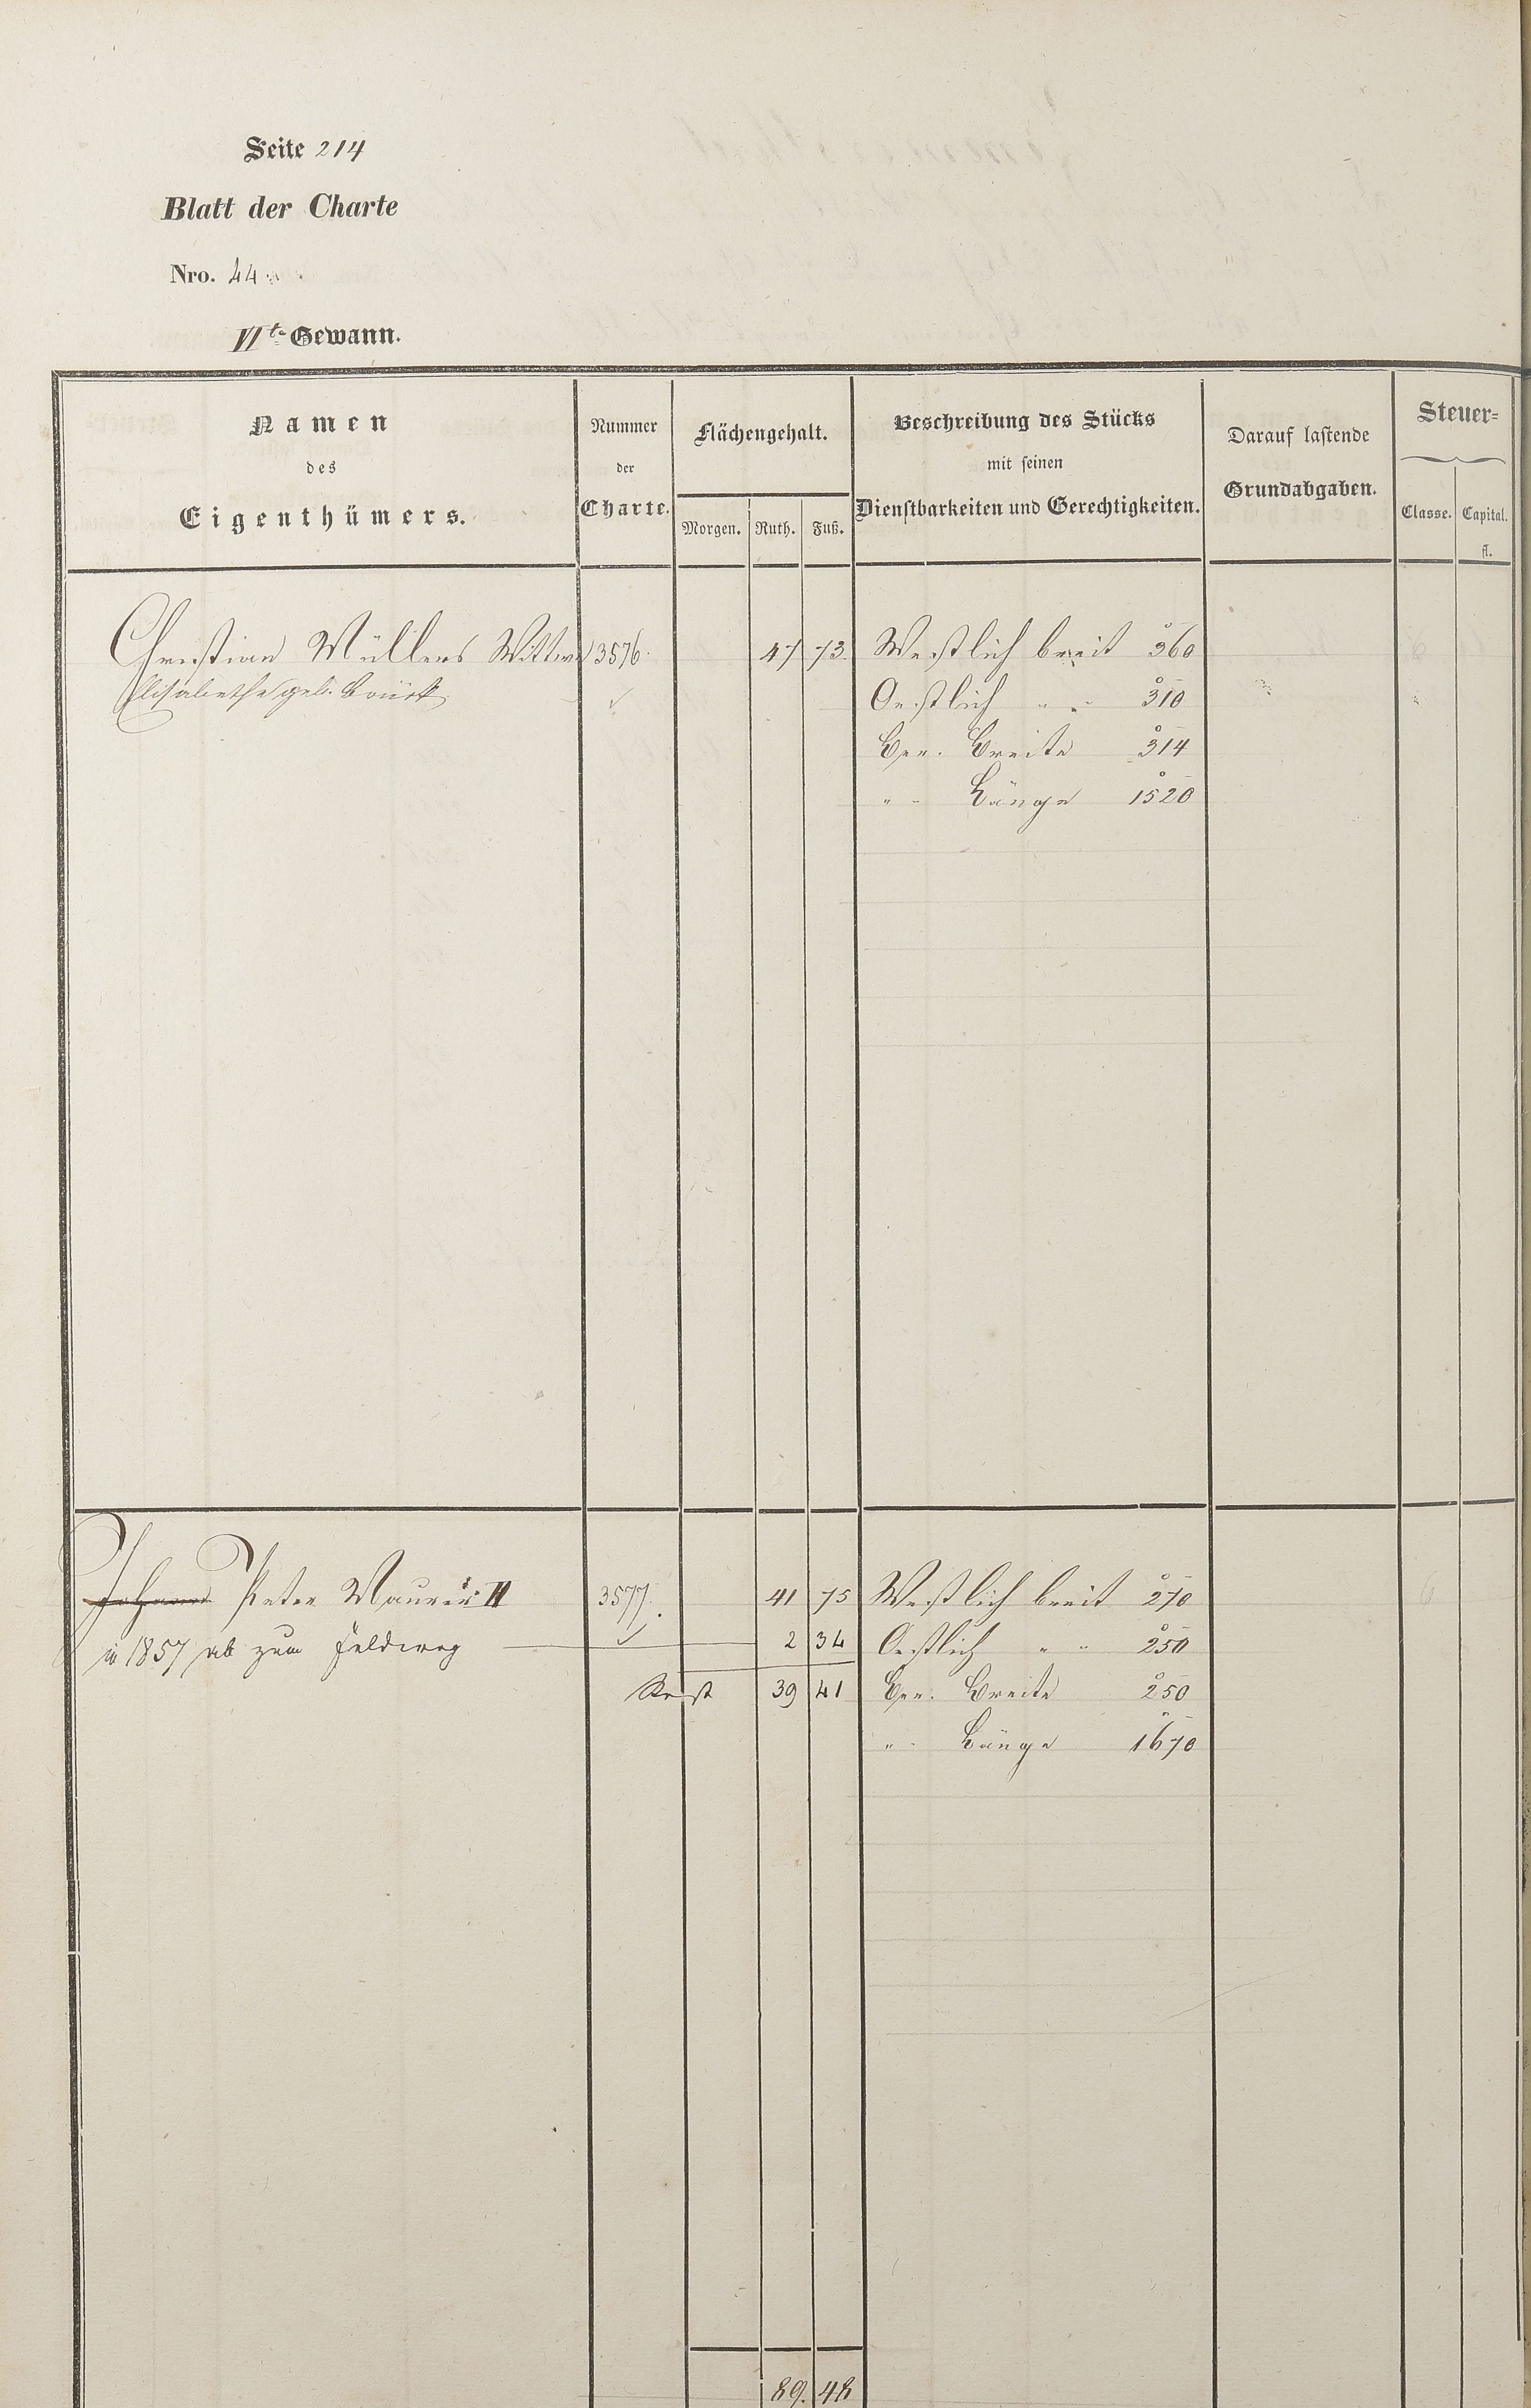 Seite 214
Blatt der Charte
Nro. 44
VIte Gewann.
Namen
des
Eigenthümers.
Nummer
der
Charte.
Flächengehalt.
Morgen. Ruth. Fuß.
Beschreibung des Stücks
mit seinen
Dienstbarkeiten und Gerechtigkeiten.
Darauf lastende
Grundabgaben.
Steuer-
Classe. Capital.
fl.
Christian Müllers Wittwe 3576. 47 73. Westlich breit 360
Elisabetha geb. Oestlich " " 310
Ger. Breite 314
" Länge 1520
Johann Peter Maurer II 3577. 41 75 Westlich breit 270
in 1857 ab zum Feldweg 2 34 Oestlich " " 250
Rest 39 41 Ger. Breite 250
" Länge 1670
89. 48